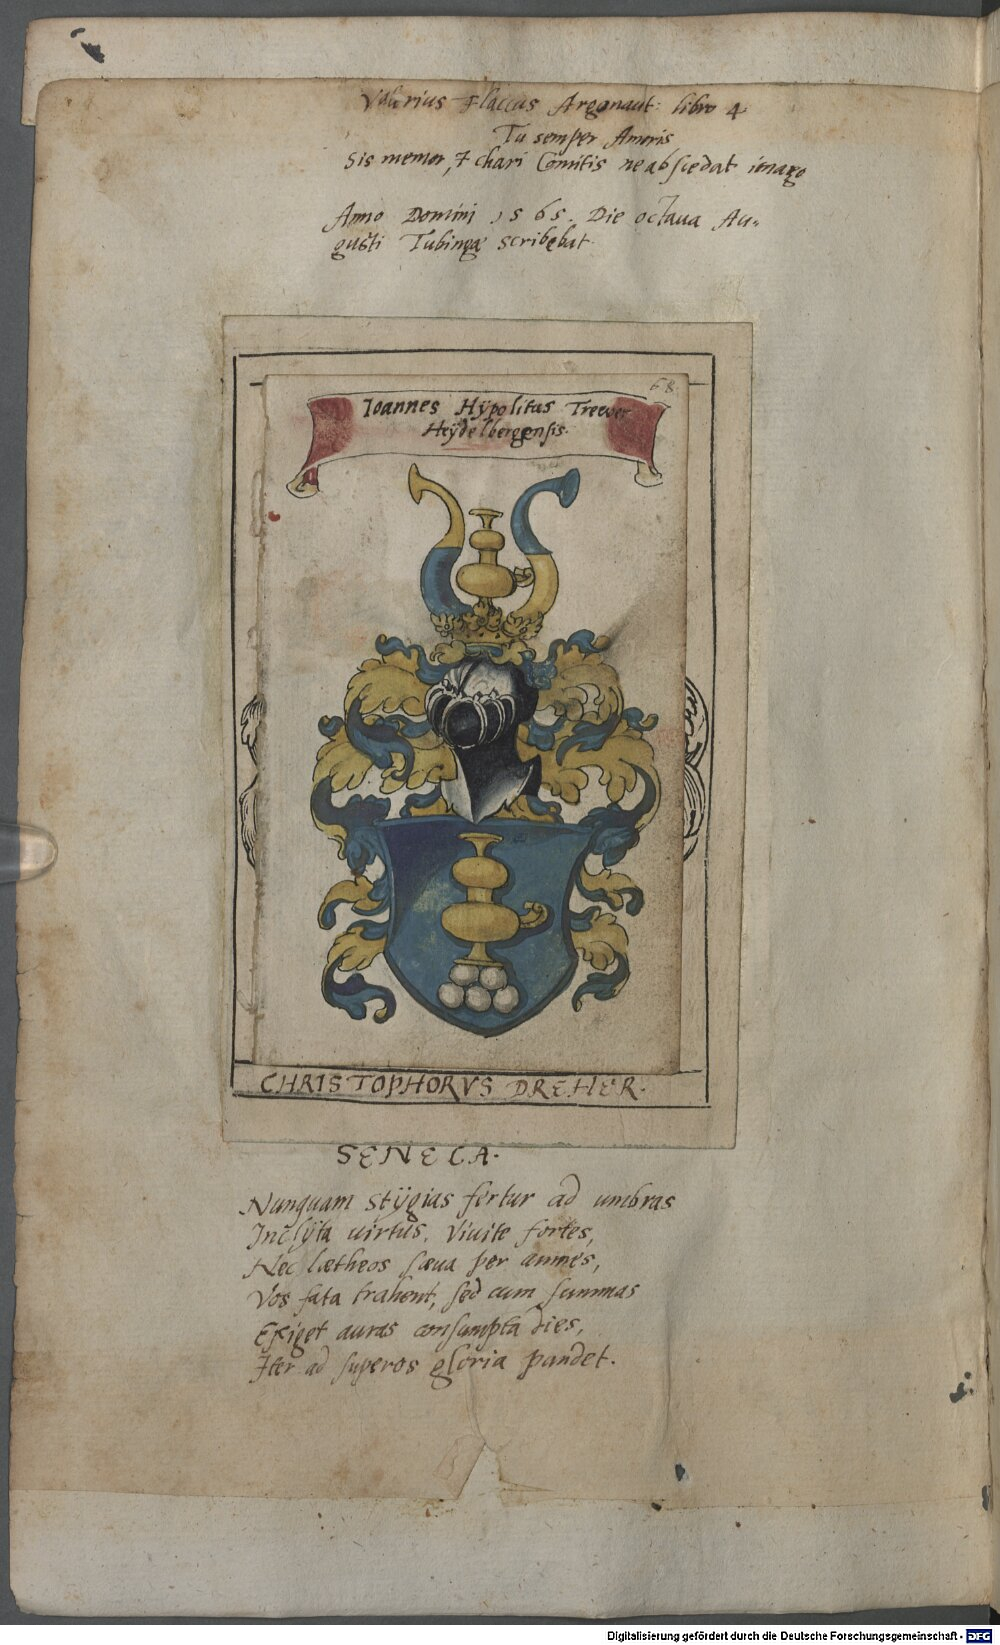 Valerius Flaccus Argonaut: libro 4
Tu semper Amoris
Sis memor, & chari Comitis ne abscedat imago
Anno Domini 1565. Die octaua Au=
gusti Tubingæ scribebat.
68
Ioannes Hÿpolitus Treever
Heÿdelbergensis.
CHRISTOPHORVS DREHER.
SENECA.
Nunquam stÿgias fertur ad umbras
Inclÿta uirtus. Viuite fortes,
Nec lætheos sæua per amnes,
Vos fata trahent, sed cum summas
Exiget auras consumpta dies,
Iter ad superos gloria pandet.
Digitalisierung gefördert durch die Deutsche Forschungsgemeinschaft - DFG